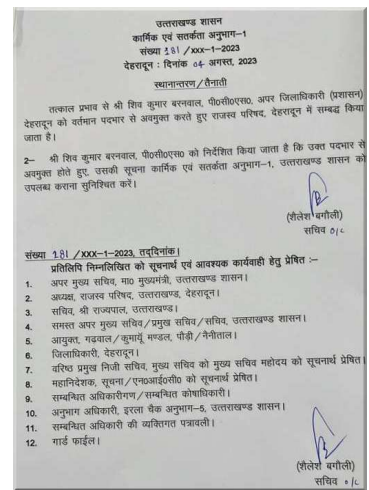 उत्तराखण्ड शासन
कार्मिक एवं सतर्कता अनुभाग-1
संख्या 181 /xxx-1-2023
देहरादून : दिनांक 04 अगस्त, 2023
स्थानान्तरण / तैनाती
तत्काल प्रभाव से श्री शिव कुमार बरनवाल, पी0सी0एस0, अपर जिलाधिकारी (प्रशासन)
देहरादून को वर्तमान पदभार से अवमुक्त करते हुए राजस्व परिषद, देहरादून में सम्बद्ध किया
जाता है।
2– श्री शिव कुमार बरनवाल, पी0सी0एस0 को निर्देशित किया जाता है कि उक्त पदभार से
अवमुक्त होते हुए, उसकी सूचना कार्मिक एवं सतर्कता अनुभाग-1, उत्तराखण्ड शासन को
उपलब्ध कराना सुनिश्चित करें।
(शैलेश बगौली)
सचिव o/c
संख्या 181 /XXX-1-2023, तद्दिनांक।
प्रतिलिपि निम्नलिखित को सूचनार्थ एवं आवश्यक कार्यवाही हेतु प्रेषित :–
1. अपर मुख्य सचिव, मा0 मुख्यमंत्री, उत्तराखण्ड शासन।
2. अध्यक्ष, राजस्व परिषद, उत्तराखण्ड, देहरादून।
3. सचिव, श्री राज्यपाल, उत्तराखण्ड।
4. समस्त अपर मुख्य सचिव / प्रमुख सचिव / सचिव, उत्तराखण्ड शासन।
5. आयुक्त, गढ़वाल / कुमायूँ मण्डल, पौड़ी / नैनीताल।
6. जिलाधिकारी, देहरादून।
7. वरिष्ठ प्रमुख निजी सचिव, मुख्य सचिव को मुख्य सचिव महोदय को सूचनार्थ प्रेषित।
8. महानिदेशक, सूचना / एन0आई0सी0 को सूचनार्थ प्रेषित।
9. सम्बन्धित अधिकारीगण / सम्बन्धित कोषाधिकारी।
10. अनुभाग अधिकारी, इरला चैक अनुभाग-5, उत्तराखण्ड शासन।
11. सम्बन्धित अधिकारी की व्यक्तिगत पत्रावली।
12. गार्ड फाईल।
(शैलेश बगौली)
सचिव o/c